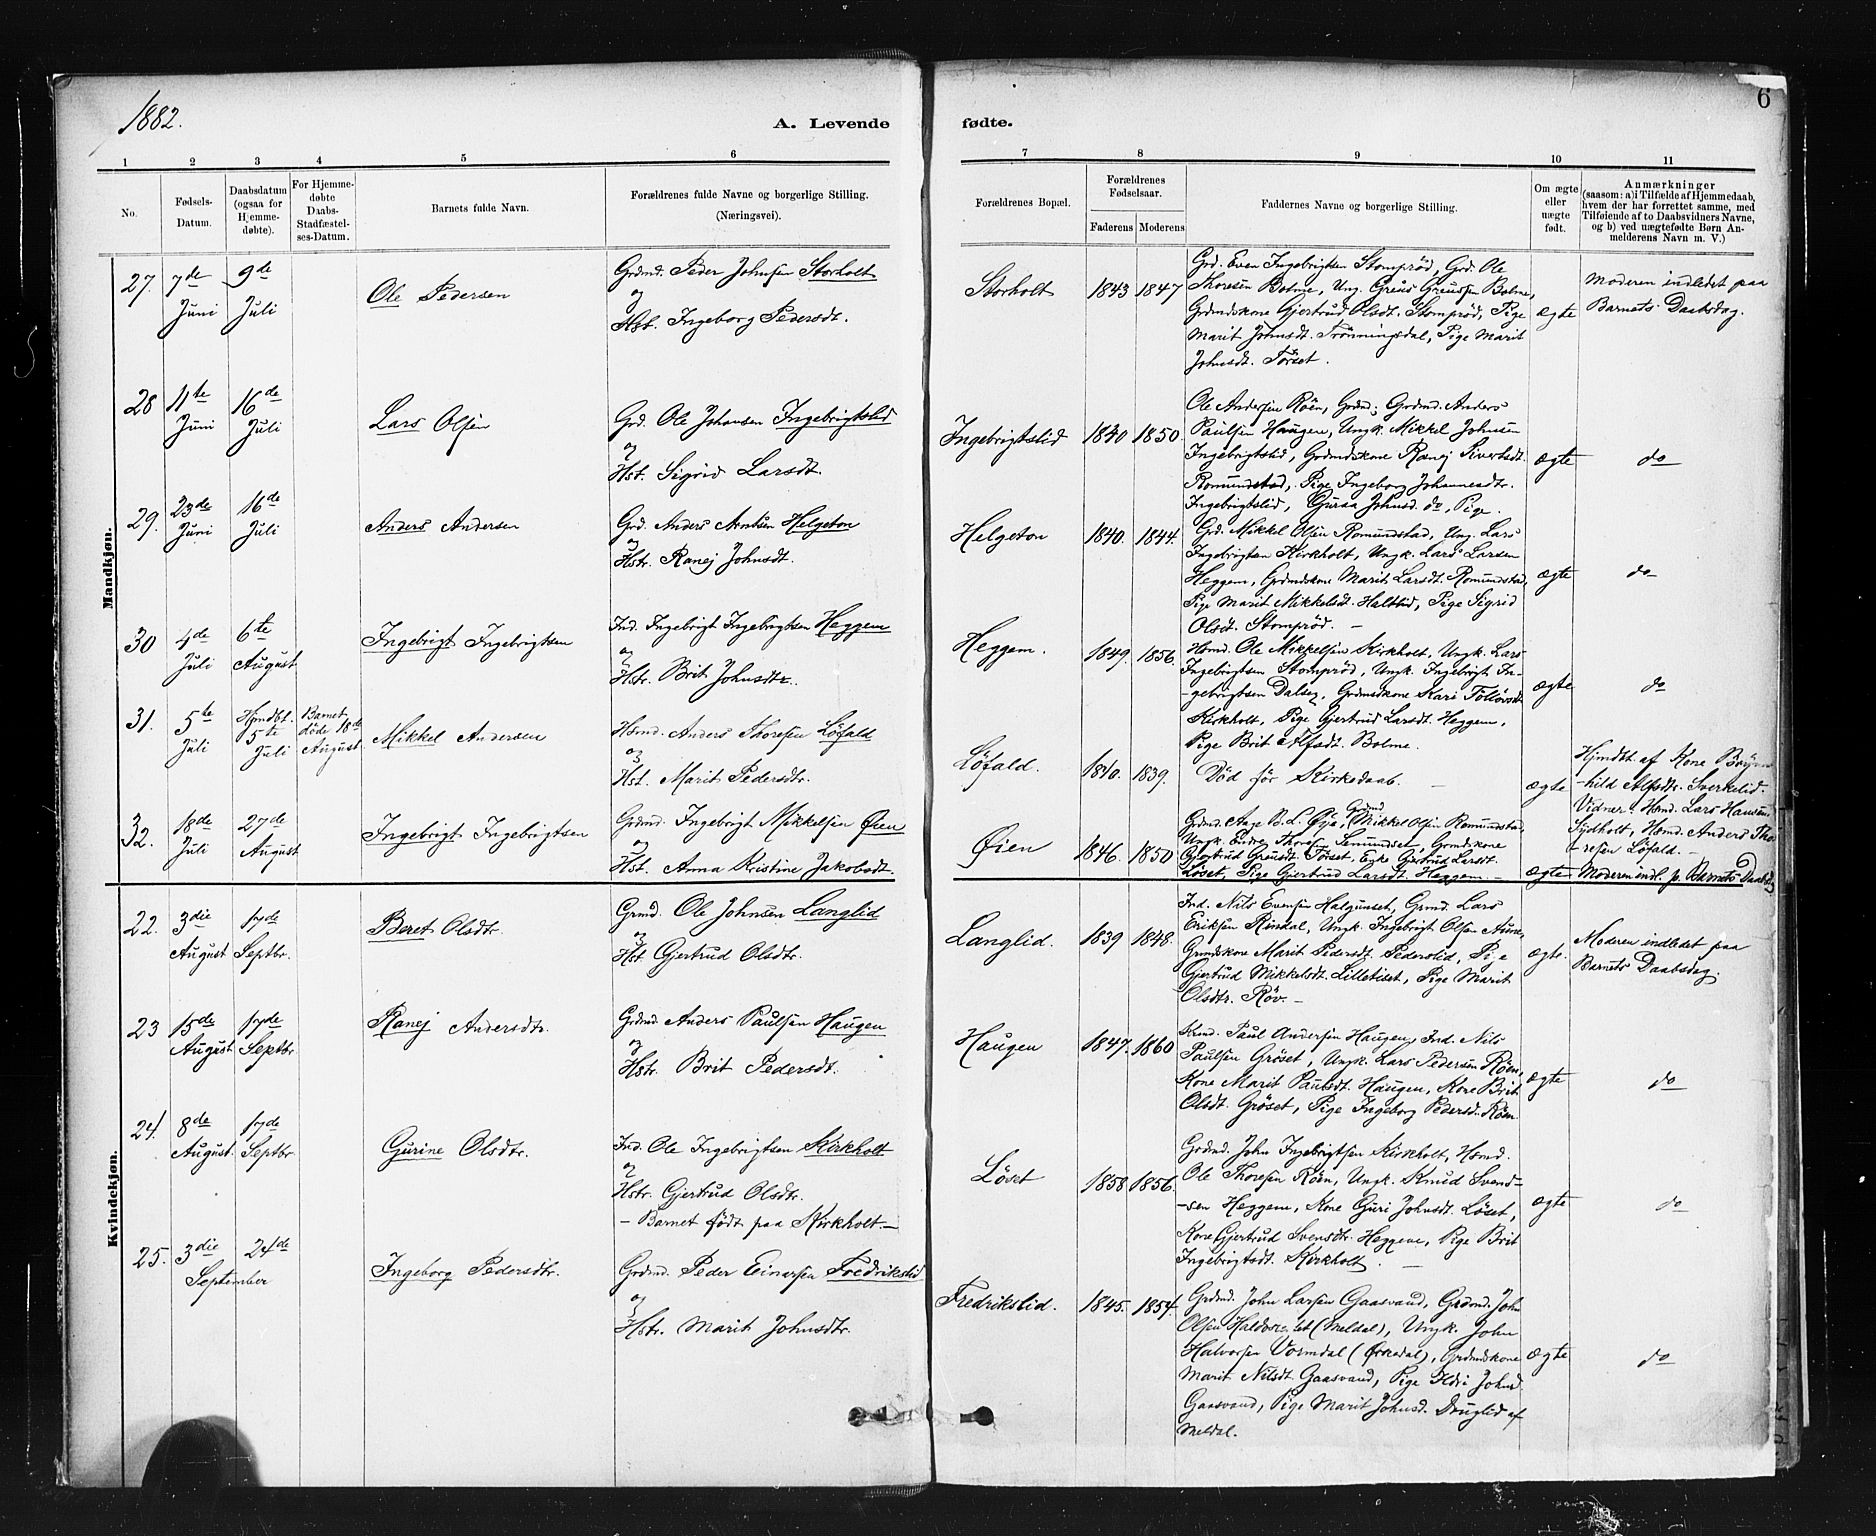 1882.
A. Levende
1 2 3 4 5 6
No.
Fødsels-
Datum.
Daabsdatum
(ogsaa for
Hjemme-
døbte).
For Hjemme-
døbte
Daabs-
Stadfæstel-
ses-Datum.
Barnets fulde Navn.
Forældrenes fulde Navne og borgerlige Stilling.
(Næringsvei).
Mandkjøn.
27. 7de Juni 9de Juli Ole Pedersen
Grdmd. Peder Johnsen Storholt
og
Hst. Ingeborg Pedersdt.
28 11te Juni 16de Juli Lars Olsen
Grd. Ole Johansen Ingebrigtslid
og
Hst. Sigrid Larsdt.
29. 23de Juni 16de Juli Anders Andersen
Grd. Anders Arntsen Helgeton
og
Hstr. Ranej Johnsdt.
30 4de Juli 6te August Ingebrigt Ingebrigtsen
Ind. Ingebrigt Ingebrigtsen Heggem
og
Hstr. Brit Johnsdtr.
31. 5te Juli Hjmdbt. 5te Juli Barnet døde 18de August Mikkel Andersen
Hsmd. Anders Thoresen Løfald
og
Hst. Marit Pedersdtr.
32. 18de Juli 27de August Ingebrigt Ingebrigtsen
Grdmd. Ingebrigt Mikkelsen Øien
og
Hst. Anna Kristine Jakobsdt.
Kvindekjøn.
22. 3die August 17de Septbr. Beret Olsdtr.
Grmd. Ole Johnsen Langlid
og
Hst. Gjertrud Olsdtr.
23 15de August 17de Septbr Ranej Andersdtr.
Grdmd. Anders Paulsen Haugen
og
Hstr. Brit Pedersdt.
24. 8de August. 17de Septbr. Gurine Olsdtr.
Ind. Ole Ingebrigtsen Kirkholt
og
Hstr. Gjertrud Olsdtr.
- Barnet født paa Kirkholt -
25. 3die September 24de Ingeborg Pedersdtr.
Grdmd. Peder Einarsen Fredrikslid
og
Hstr. Marit Johnsdtr.
6
fødte.
7 8 9 10 11
Forældrenes Bopæl.
Forældrenes
Fødselsaar.
Faderens Moderens
Faddernes Navne og borgerlige Stilling.
Om ægte
eller
uægte
født.
Anmærkninger
(saasom: a) i Tilfælde af Hjemmedaab,
hvem der har forrettet samme, med
Tilføiende af to Daabsvidners Navne,
og b) ved uægtefødte Børn An-
melderens Navn m. V.)
Storholt 1843 1847
Grd. Even Ingebrigtsen Stomprød, Grd. Ole
Thoresen Bolme, Ung. Greus Greussen Bolme,
Grdmdskone Gjertrud Olsdt. Stomprød, Pige
Marit Johnsdt. Trønningsdal, Pige Marit
Johnsdt. Tørset.
ægte
Moderen indledet paa
Barnets Daabsdag.
Ingebrigtslid 1840 1850.
Ole Andersen Røen, Grdmd; Grdmd. Anders
Paulsen Haugen, Ungk. Mikkel Johnsen
Ingebrigtslid, Grdmdskone Ranej Sivertsdt.
Romundstad, Pige Ingeborg Johannesdtr.
Ingebrigtslid, Guraa Johnsd. do, Pige.
ægte
do
Helgeton 1840. 1844.
Grd. Mikkel Olsen Romundstad, Ung. Lars
Ingebrigtsen Kirkholt, Ungk. Lars Larsen
Heggem, Grdmdskone Marit Larsdt. Romundstad,
Pige Marit Mikkelsdt. Haltlid, Pige Sigrid
Olsdt. Stomprød. -
ægte
do
Heggem. 1849. 1856.
Hsmd. Ole Mikkelsen Kirkholt, Ungk. Lars
Ingebrigtsen Stomprød, Ungk. Ingebrigt In-
-gebrigtsen Dalseg, Grdmdskone Kari
Kirkholt, Pige Gjertrud Larsdt. Heggem,
Pige Brit Alfsdt. Bolme.
ægte
do
Løfald. 1840. 1839.
Død før Kirkedaab. -
ægte
Hjmdbt. af Kone Bryn-
-hild Alfsdtr. Sverkelid.
Vidner: Hsmd. Lars Hansen
Sydholt, Hsmd. Anders Tho-
-resen Løfald. -
Øien 1846. 1850
Grdmd. Aage L. Øye, Grdmd Mikkel Olsen Romundstad,
Ungk. Endre Thoresen, Grmdskone
Gjertrud Greusdt. Tørset, Gjertrud Larsdt.
Løset, Pige Gjertrud Larsdt. Heggem. -
ægte
Moderen indl. p. Barnets Daabsdag
Langlid. 1839 1848.
Ind. Nils Evensen Halgunset, Grmd. Lars
Eriksen Rindal, Ungk. Ingebrigt Olsen Aune,
Grmdskone Marit Pedersdt. Pederslid, Pige
Gjertrud Mikkelsdt. Lilletiset, Pige Marit
Olsdtr. Røv. -
ægte.
Moderen indledet paa
Barnets Daabsdag.
Haugen 1847. 1860
Paul Andersen Haugen, Ind. Nils
Paulsen Grøset, Ungk. Lars Pedersen Røen,
Kone Marit Paulsdt. Haugen, Kone Brit
Olsdt. Grøset, Pige Ingeborg Pedersd. Røen
ægte
do
Løset 1858 1856.
Grdmd. John Ingebrigtsen Kirkholt, Hsmd.
Ole Thoresen Røen, Ungk. Knud Svend-
-sen Heggem, Kone Guri Johnsdt. Løset,
Kone Gjertrud Svensdtr. Heggem, Pige Brit
Ingebrigtsdt. Kirkholt. -
ægte
do
Fredrikslid. 1845. 1854.
Grdmd. John Larsen Gaasvand, Grdmd. John
Olsen (Meldal), Ungk. John
Halvorsen Vormdal (Ørkedal), Grdmdskone
Marit Nilsdt Gaasvand, Pige Ildri Johnsd
Gaasvand, Pige Marit Johnsd. Druglid af
Meldal.
ægte
do